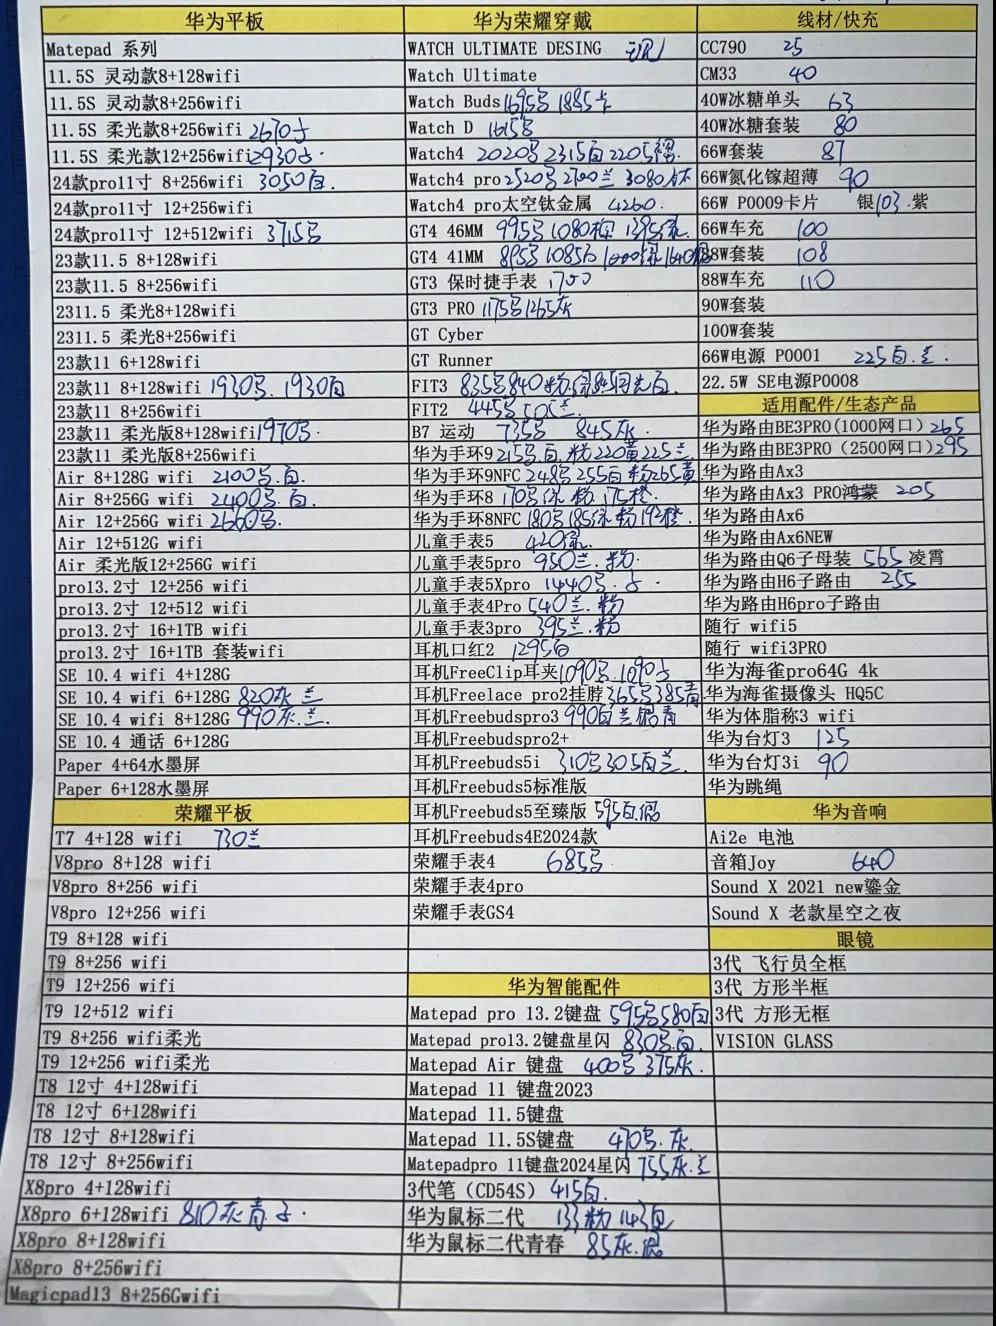 华为平板
Matepad 系列
11.5S 灵动款8+128wifi
11.5S 灵动款8+256wifi
11.5S 柔光款8+256wifi 2670
11.5S 柔光款12+256wifi 2930
24款pro11寸 8+256wifi 3050白.
24款pro11寸 12+256wifi
24款pro11寸 12+512wifi 3715
23款11.5 8+128wifi
23款11.5 8+256wifi
2311.5 柔光8+128wifi
2311.5 柔光8+256wifi
23款11 6+128wifi
23款11 8+128wifi 1930 . 1930白
23款11 8+256wifi
23款11 柔光版8+128wifi 1970
23款11 柔光版8+256wifi
Air 8+128G wifi 2100 .白
Air 8+256G wifi 2400 .白
Air 12+256G wifi 2660
Air 12+512G wifi
Air 柔光版12+256G wifi
pro13.2寸 12+256 wifi
pro13.2寸 12+512 wifi
pro13.2寸 16+1TB wifi
pro13.2寸 16+1TB 套装wifi
SE 10.4 wifi 4+128G
SE 10.4 wifi 6+128G 820灰 兰
SE 10.4 wifi 8+128G 990灰.兰
SE 10.4 通话 6+128G
Paper 4+64水墨屏
Paper 6+128水墨屏
荣耀平板
T7 4+128 wifi 730兰
V8pro 8+128 wifi
V8pro 8+256 wifi
V8pro 12+256 wifi
T9 8+128 wifi
T9 8+256 wifi
T9 12+256 wifi
T9 12+512 wifi
T9 8+256 wifi柔光
T9 12+256 wifi柔光
T8 12寸 4+128wifi
T8 12寸 6+128wifi
T8 12寸 8+128wifi
T8 12寸 8+256wifi
X8pro 4+128wifi
X8pro 6+128wifi 810灰青
X8pro 8+128wifi
X8pro 8+256wifi
Magicpad13 8+256Gwifi
华为荣耀穿戴
WATCH ULTIMATE DESING
Watch Ultimate
Watch Buds 1695 1885
Watch D 1615
Watch4 2020 2315白 2205
Watch4 pro 2520 2700兰 3080
Watch4 pro太空钛金属 4260.
GT4 46MM 995 1080 1395
GT4 41MM 895 1085
GT3 保时捷手表 1700
GT3 PRO 1175 1265灰
GT Cyber
GT Runner
FIT3 835 840粉
FIT2 445 505兰.
B7 运动 735 845灰.
华为手环9 215 白.粉220黄225兰
华为手环9NFC 248 255白 粉265黄
华为手环8 170 粉 175橙.
华为手环8NFC 180 185 粉192橙
儿童手表5 420
儿童手表5pro 950兰.粉
儿童手表5Xpro 1440
儿童手表4Pro 540兰.粉
儿童手表3pro 395兰.粉
耳机口红2 1295白
耳机FreeClip耳夹 1090 .1090
耳机Freelace pro2挂脖 365 385青
耳机Freebudspro3 990白兰银青
耳机Freebudspro2+
耳机Freebuds5i 310 305白兰.
耳机Freebuds5标准版
耳机Freebuds5至臻版 595白.银
耳机Freebuds4E2024款
荣耀手表4 685
荣耀手表4pro
荣耀手表GS4
华为智能配件
Matepad pro 13.2键盘 595 580白
Matepad pro13.2键盘星闪 830 .白.
Matepad Air 键盘 400 375灰.
Matepad 11 键盘2023
Matepad 11.5键盘
Matepad 11.5S键盘 470 .灰
Matepadpro 11键盘2024星闪 755灰.兰
3代笔（CD54S） 415白.
华为鼠标二代 133粉 143白
华为鼠标二代青春 85灰.银
线材/快充
CC790 25
CM33 40
40W冰糖单头 63
40W冰糖套装 80
66W套装 87
66W氮化镓超薄 90
66W P0009卡片 银103.紫
66W车充 100
88W套装 108
88W车充 110
90W套装
100W套装
66W电源 P0001 225白.兰.
22.5W SE电源P0008
适用配件/生态产品
华为路由BE3PRO(1000网口) 265
华为路由BE3PRO (2500网口) 295
华为路由Ax3
华为路由Ax3 PRO鸿蒙 205
华为路由Ax6
华为路由Ax6NEW
华为路由Q6子母装 565 凌霄
华为路由H6子路由 255
华为路由H6pro子路由
随行 wifi5
随行 wifi3PRO
华为海雀pro64G 4k
华为海雀摄像头 HQ5C
华为体脂称3 wifi
华为台灯3 125
华为台灯3i 90
华为跳绳
华为音响
Ai2e 电池
音箱Joy 640
Sound X 2021 new鎏金
Sound X 老款星空之夜
眼镜
3代 飞行员全框
3代 方形半框
3代 方形无框
VISION GLASS